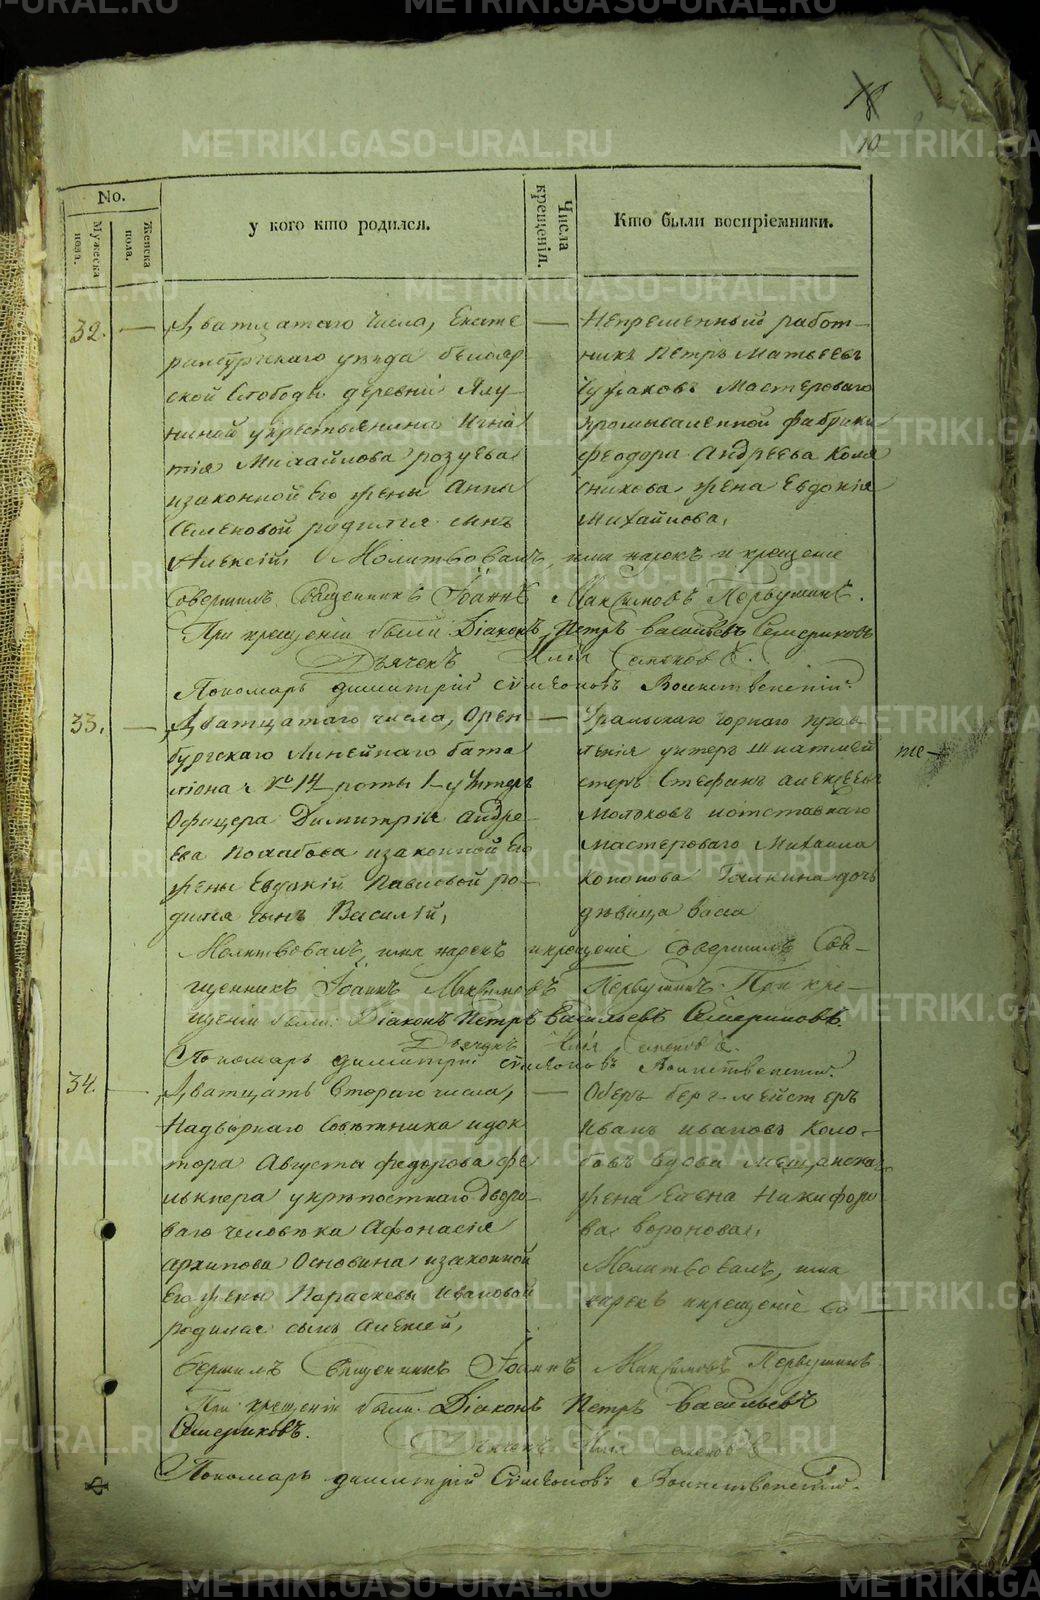 METRIKI.GASO-URAL.RU
18
10
No.
Мужеска пола.
Женска пола.
у кого кто родился.
Числа крещенія.
Кто были воспріемники.
32. — Дватцатаго числа, Екате
ринбургскаго уезда белояр
ской Слободы деревниЯлу
ниной укрестьянина Игна
тія Михайлова
изаконной его жены Анны
Семеновой родился сынъ
Алексій,
— Непременный работ
никъ Петръ Матвеевъ
Мастероваго
промываленной фабрики
Феодора Андреева Коля
сникова жена Евдокія
Михайлова,
Молитвовалъ, имя нарекъ и крещеніе
Совершилъ Священникъ Іоаннъ Максимовъ Первушинъ.
При крещеніи были: Діаконъ Петръ Васильевъ Семериковъ
Дьячекъ Илія
Пономарь димитрій Симеоновъ Воинственскій.
33. — Дватцатаго числа, Орен
бургскаго Линейнаго бата
ліона № 14 роты 1 у Унтеръ
Офицера Димитрія Андре
ева изаконной его
жены Евдокій Павловой ро
дился сынъ Василій,
— Уральскаго горнаго прав
ленія унтеръ шихтмей
стеръ Стефанъ алексеевъ
иотставнаго
мастероваго Михаила
Кононова Галкина дочь
девица
Молитвовалъ, имя нарекъ икрещеніе Совершилъ Свя
щенникъ Іоаннъ Максимовъ Первушинъ. При кре
щеніи были: Діаконъ Петръ Васильевъ Семериковъ.
Дьячекъ Илія
Пономарь димитрій Симеоновъ Воинственскій.
34. — Дватцать Втораго числа,
Надворнаго Советника идок
тора Августа Федорова
укрепостнаго дворо
ваго человека Афонасія
архипова Основина изаконной
его жены Параскевы Ивановой
родился сынъ Алексей,
— Оберъ берг-мейстеръ
Иванъ ивановъ Коло
бовъ Вдова мещанска
жена Елена Никифоро
ва Воронова,
Молитвовалъ, имя
нарекъ икрещеніе Со
вершилъ Священникъ Іоаннъ Максимовъ Первушинъ
При крещеніи были: Діаконъ Петръ Васильевъ
Семериковъ.
Дьячекъ Илія
Пономарь димитрій Симеоновъ Воинственскій.